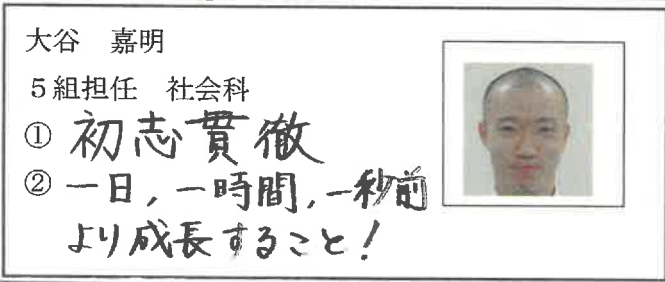 大谷　嘉明
５組担任　社会科
① 初志貫徹
② 一日，一時間，一秒前
より成長すること！